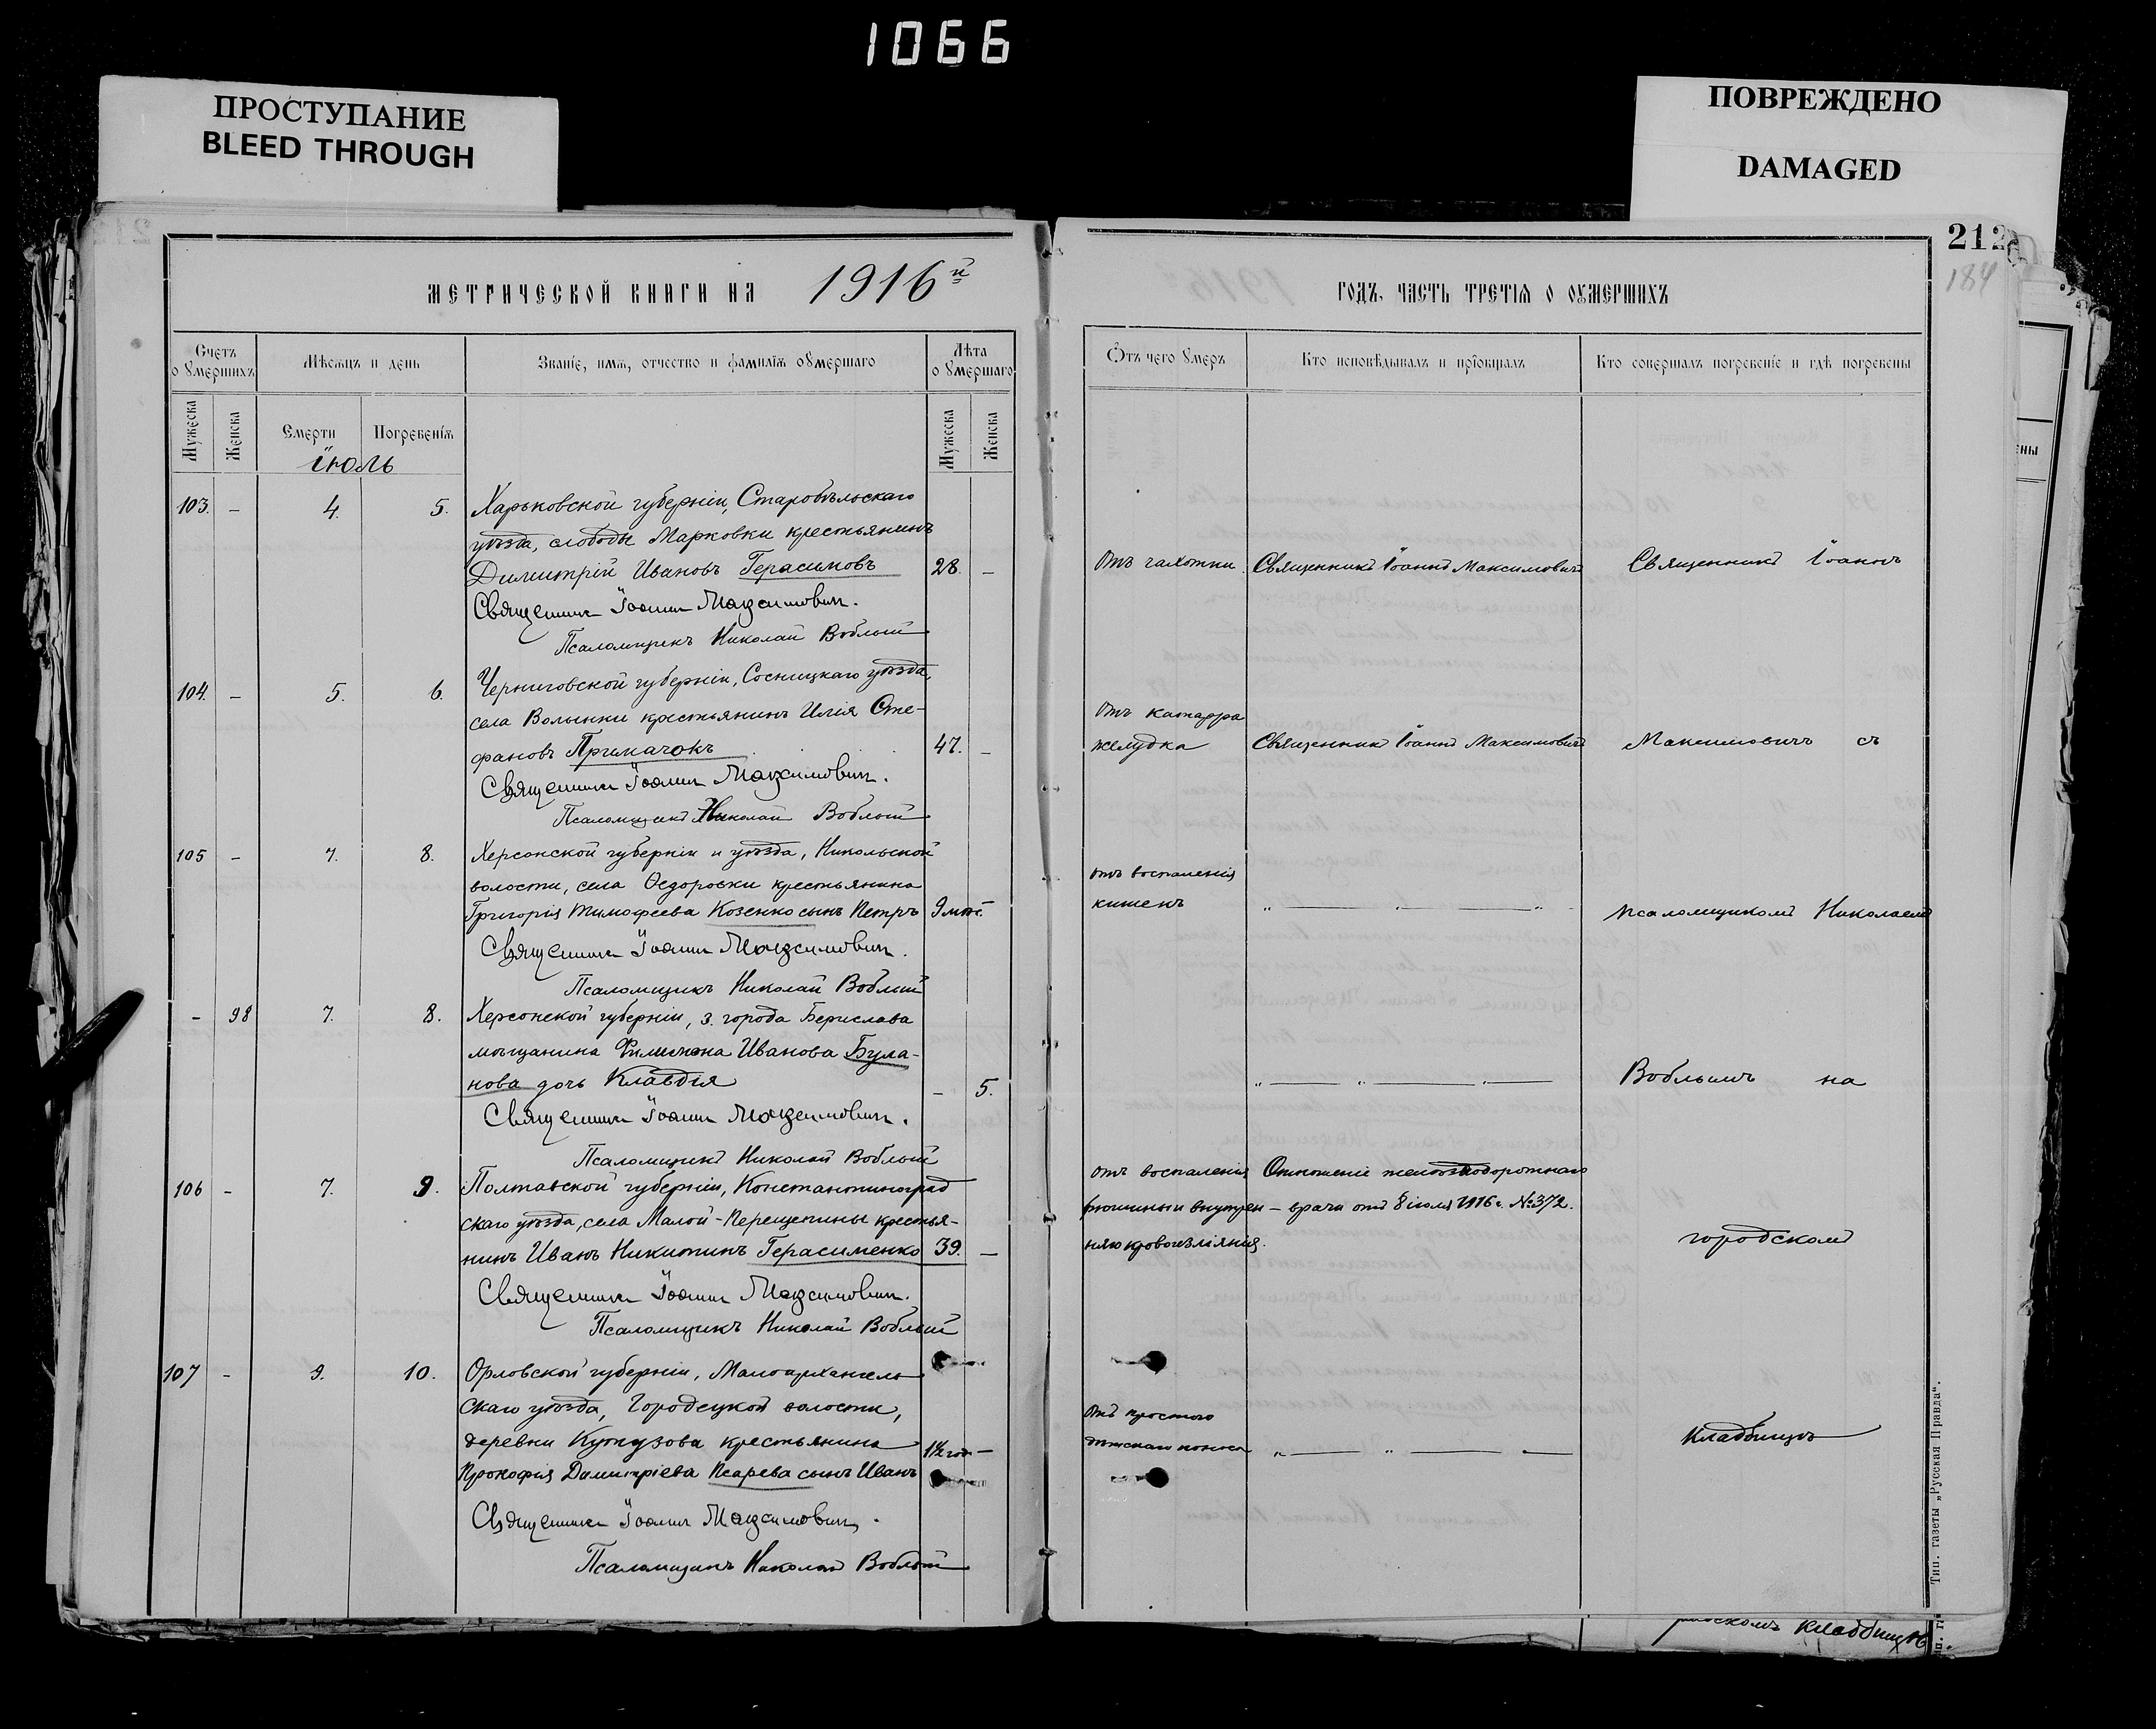 1066
ПРОСТУПАНИЕ
BLEED THROUGH
ПОВРЕЖДЕНО
DAMAGED
212
184
МЕТРИЧЕСКОЙ КНИГИ НА 1916й
Счетъ о умершихъ
Мѣсяцъ и день
Званіе, имя, отчество и фамилія умершаго
Лѣта о умершаго
Мужеска
Женска
Смерти
Погребенія
Мужеска
Женска
іюль
103. - 4. 5. Харьковской губерніи, Старобѣльскаго
уѣзда, слободы Марковки крестьянинъ
Димитрій Ивановъ Герасимовъ 28. -
Священникъ Іоаннъ Максимовичъ.
Псаломщикъ Николай Воблый
104. - 5. 6. Черниговской губерніи, Сосницкаго уѣзда,
села Волынки крестьянинъ Илія Сте-
фановъ Примачокъ 47. -
Священникъ Іоаннъ Максимовичъ.
Псаломщикъ Николай Воблый
105 - 7. 8. Херсонской губерніи и уѣзда, Никольской
волости, села Ѳедоровки крестьянина
Григорія Тимофеева Козенко сынъ Петръ 9 мѣс.
Священникъ Іоаннъ Максимовичъ.
Псаломщикъ Николай Воблый
- 98 7. 8. Херсонской губерніи, з. города Берислава
мѣщанина Филимона Иванова Була-
нова дочь Клавдія - 5.
Священникъ Іоаннъ Максимовичъ.
Псаломщикъ Николай Воблый
106 - 7. 9. Полтавской губерніи, Константиноград
скаго уѣзда, села Малой-Перещепины крестья-
нинъ Иванъ Никитинъ Герасименко 39. -
Священникъ Іоаннъ Максимовичъ.
Псаломщикъ Николай Воблый
107 - 9. 10. Орловской губерніи, Малоархангель
скаго уѣзда, Городецкой волости,
деревни Кутузова крестьянина
Прокофія Димитріева Псарева сынъ Иванъ 1½ год -
Священникъ Іоаннъ Максимовичъ.
Псаломщикъ Николай Воблый
ГОДЪ, ЧАСТЬ ТРЕТІЯ О УМЕРШИХЪ
Отъ чего умеръ
Кто исповѣдывалъ и пріобщалъ
Кто совершалъ погребеніе и гдѣ погребены
Отъ чахотки. Священникъ Іоаннъ Максимовичъ Священникъ Іоаннъ
Отъ катарра
желудка Священникъ Іоаннъ Максимовичъ Максимовичъ съ
Отъ воспаленія
кишекъ „ — „ — „ псаломщикомъ Николаемъ
„ — „ — „ — Воблымъ на
Отъ воспаленія Отношеніе желѣзнодорожнаго
брюшины и внутрен – врача отъ 8 іюля 1916 г. № 372.
няго кровоизліянія. городскомъ
Отъ простого
дѣтскаго поноса „ — „ — „ — кладбищѣ
Тип. газеты „Русская Правда“.
кладбищѣ
ны